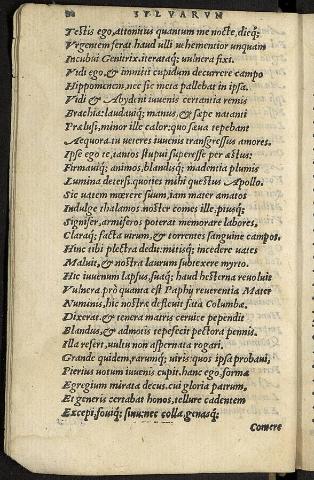 SYLVARVM
Testis ego, attonitus quantum me nocte, dieq;
Vrgentem ferat haud ulli uehementior unquam
Incubui Genitrix, iterataq; uulnera fixi.
Vidi ego, & immiti cupidum decurrere campo
Hippomenem, nec sic meta pallebat in ipsa.
Vidi & Abydeni iuuenis certantia remis
Brachia: laudauiq; manus, & sæpe natanti
Prælusi, minor ille calor: quo sæua tepebant
Aequora. tu ueteres iuuenis transgressus amores.
Ipse ego te, tantos stupui superesse per æstus:
Firmauiq; animos, blandisq; madentia plumis
Lumina detersi. quoties mihi questus Apollo.
Sic uatem mœrere suum, iam mater amatos
Indulge thalamos. noster comes ille, piusq;
Signifer, armiferos poterat memorare labores,
Claraq; facta uirum, & torrentes sanguine campos.
Hinc tibi plectra dedit: mitisq; incedere uates
Maluit, & nostra laurum subtexere myrto.
Hic iuuenum lapsus, suaq; haud hesterna reuoluit
Vulnera. prò quanta est Paphij reuerentia Mater
Numinis, hic nostræ defleuit fata Columbæ.
Dixerat. & tenera matris ceruice pependit
Blandus, & admotis tepefecit pectora pennis.
Illa refert, uultu non aspernata rogari.
Grande quidem, rarumq; uiris quos ipsa probaui,
Pierius uotum iuuenis cupit. hanc ego formæ
Egregium mirata decus. cui gloria patrum,
Et generis certabat honos, tellure cadentem
Excepi, fouiq; sinu: nec colla, genasq;
Comere